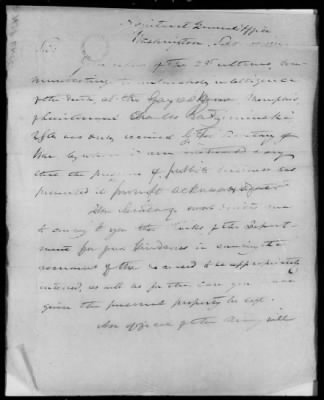 Adjutant General's Office
Washington, Feb.
Sir:
Your letter of the 25th ultimo, com-
municating the melancholy intelligence
of the death, at the Gayoso House Memphis,
of Lieutenant Charles Radziminski
was duly received by the Secretary of
War by whom I am instructed to say
that the pressure of public business has
prevented its prompt acknowledgment
The Secretary would desire me
to convey to you the thanks of the Depart-
ment for your kindness in causing the
remains of the deceased to be appropriately
interred, as well as for the care you have
given the personal property he left.
An officer of the Army will